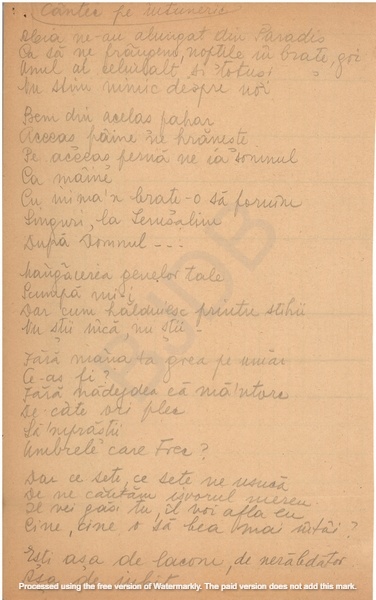 Cântec pe întuneric
Abia ne-au alungat din Paradis
Ca să ne frângem, nopțile în brațe, goi
Unul al celuilalt și totuși
Nu știm nimic despre noi
Bem din același pahar
Aceeași pâine ne hrănește
Pe aceeași pernă ne ia somnul
Ca mâine
Cu inima'n brațe-o să pornim
Singuri, la Ierusalim
După Domnul - - -
Mângâierea genelor tale
Scumpă mi-i
Dar cum hălduiesc printre stihii
Nu știi încă, nu știi -
Fără mâna ta grea pe umăr
Ce-aș fi?
Fără nădejdea că mă'ntorc
De câte ori plec
Să'mprăștii
Umbrele care trec?
Dar ce sete, ce sete ne usucă
De ne căutăm izvorul mereu
Il vei găsi tu, il voi afla eu
Cine, cine o să bea mai întâi?
Ești așa de lacom, de nerăbdător
Așa de iubit
BJDB
Processed using the free version of Watermarkly. The paid version does not add this mark.